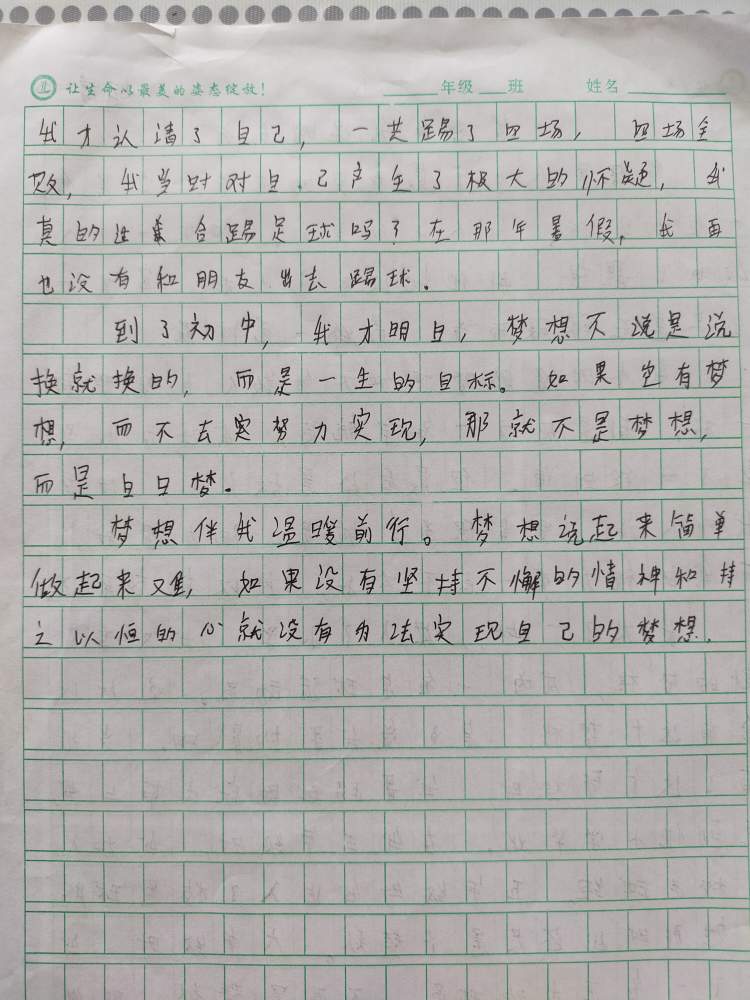 让生命以最美的姿态绽放! 年级 班 姓名
我才认清了自己,一共踢了四场,四场全
败,我当时对自己产生了极大的怀疑,我
真的适合踢足球吗?在那年暑假,我再
也没有和朋友出去踢球.
到了初中,我才明白,梦想不说是说
换就换的,而是一生的目标。如果空有梦
想,而不去实努力实现,那就不是梦想,
而是白日梦.
梦想伴我温暖前行。梦想说起来简单
做起来难,如果没有坚持不懈的情神和持
之以恒的心就没有办法实现自己的梦想.